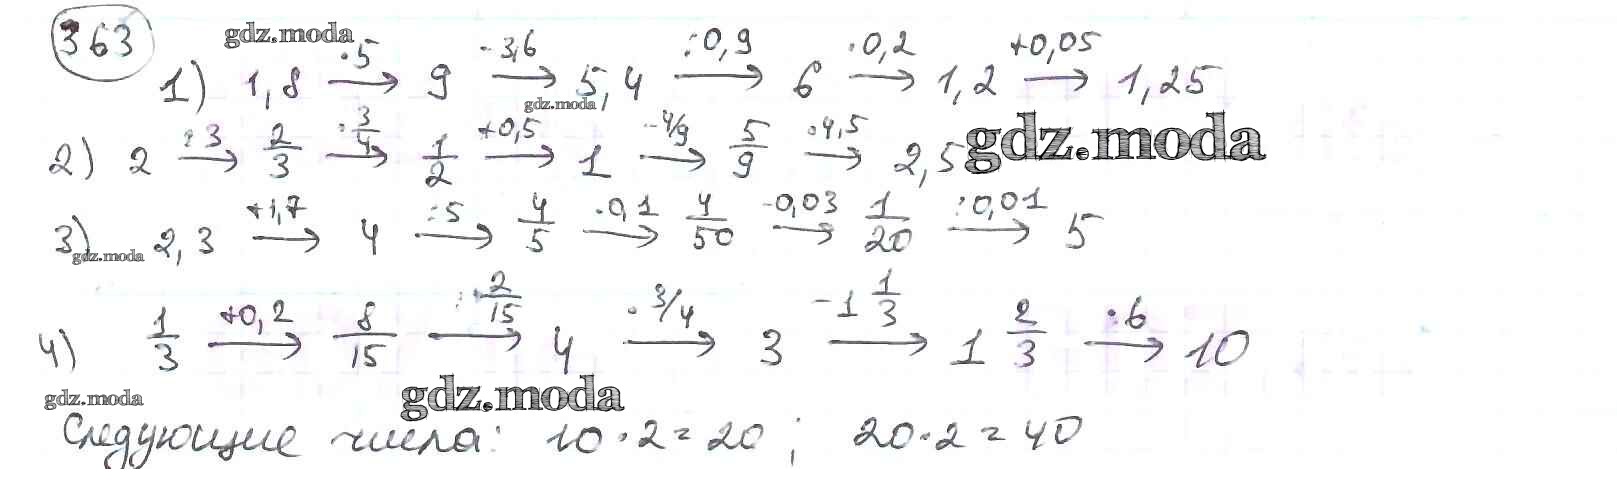 363 gdz.moda
1) 1,8 —·5→ 9 —-3,6→ 5,4 —:0,9→ 6 —·0,2→ 1,2 —+0,05→ 1,25
gdz.moda
gdz.moda
2) 2 —:3→ 2/3 —·3/4→ 1/2 —+0,5→ 1 —-4/9→ 5/9 —·4,5→ 2,5
3) 2,3 —+1,7→ 4 —:5→ 4/5 —·0,1→ 4/50 —-0,03→ 1/20 —:0,01→ 5
gdz.moda
4) 1/3 —+0,2→ 8/15 —:2/15→ 4 —·3/4→ 3 —-1 1/3→ 1 2/3 —·6→ 10
gdz.moda gdz.moda
Следующие числа: 10·2=20; 20·2=40